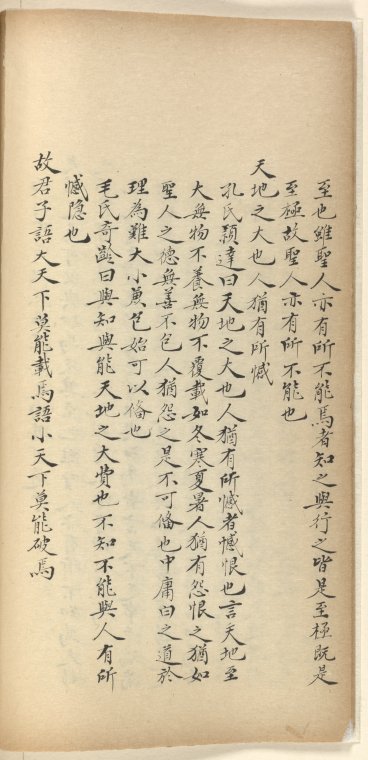 至也雖聖人亦有所不能焉者知之與行之皆是至極既是
至極故聖人亦有所不能也
天地之大也人猶有所憾
孔氏穎達曰天地之大也人猶有所憾者憾恨也言天地至
大無物不養無物不覆載如冬寒夏暑人猶有怨恨之猶如
聖人之德無善不包人猶怨之是不可備也中庸曰之道於
理為難大小兼包始可以備也
毛氏奇齡曰與知與能天地之大費也不知不能與人有所
憾隱也
故君子語大天下莫能載焉語小天下莫能破焉